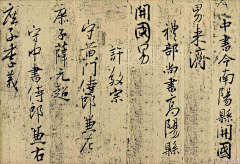 守中書令南陽縣開國
男來濟
禮部尚書高陽縣
開國男
許敬宗
守黃門侍郎兼左
庶子薛元超
守中書侍郎兼右
庶子李義